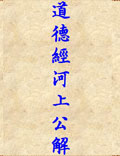 道德經河上公解